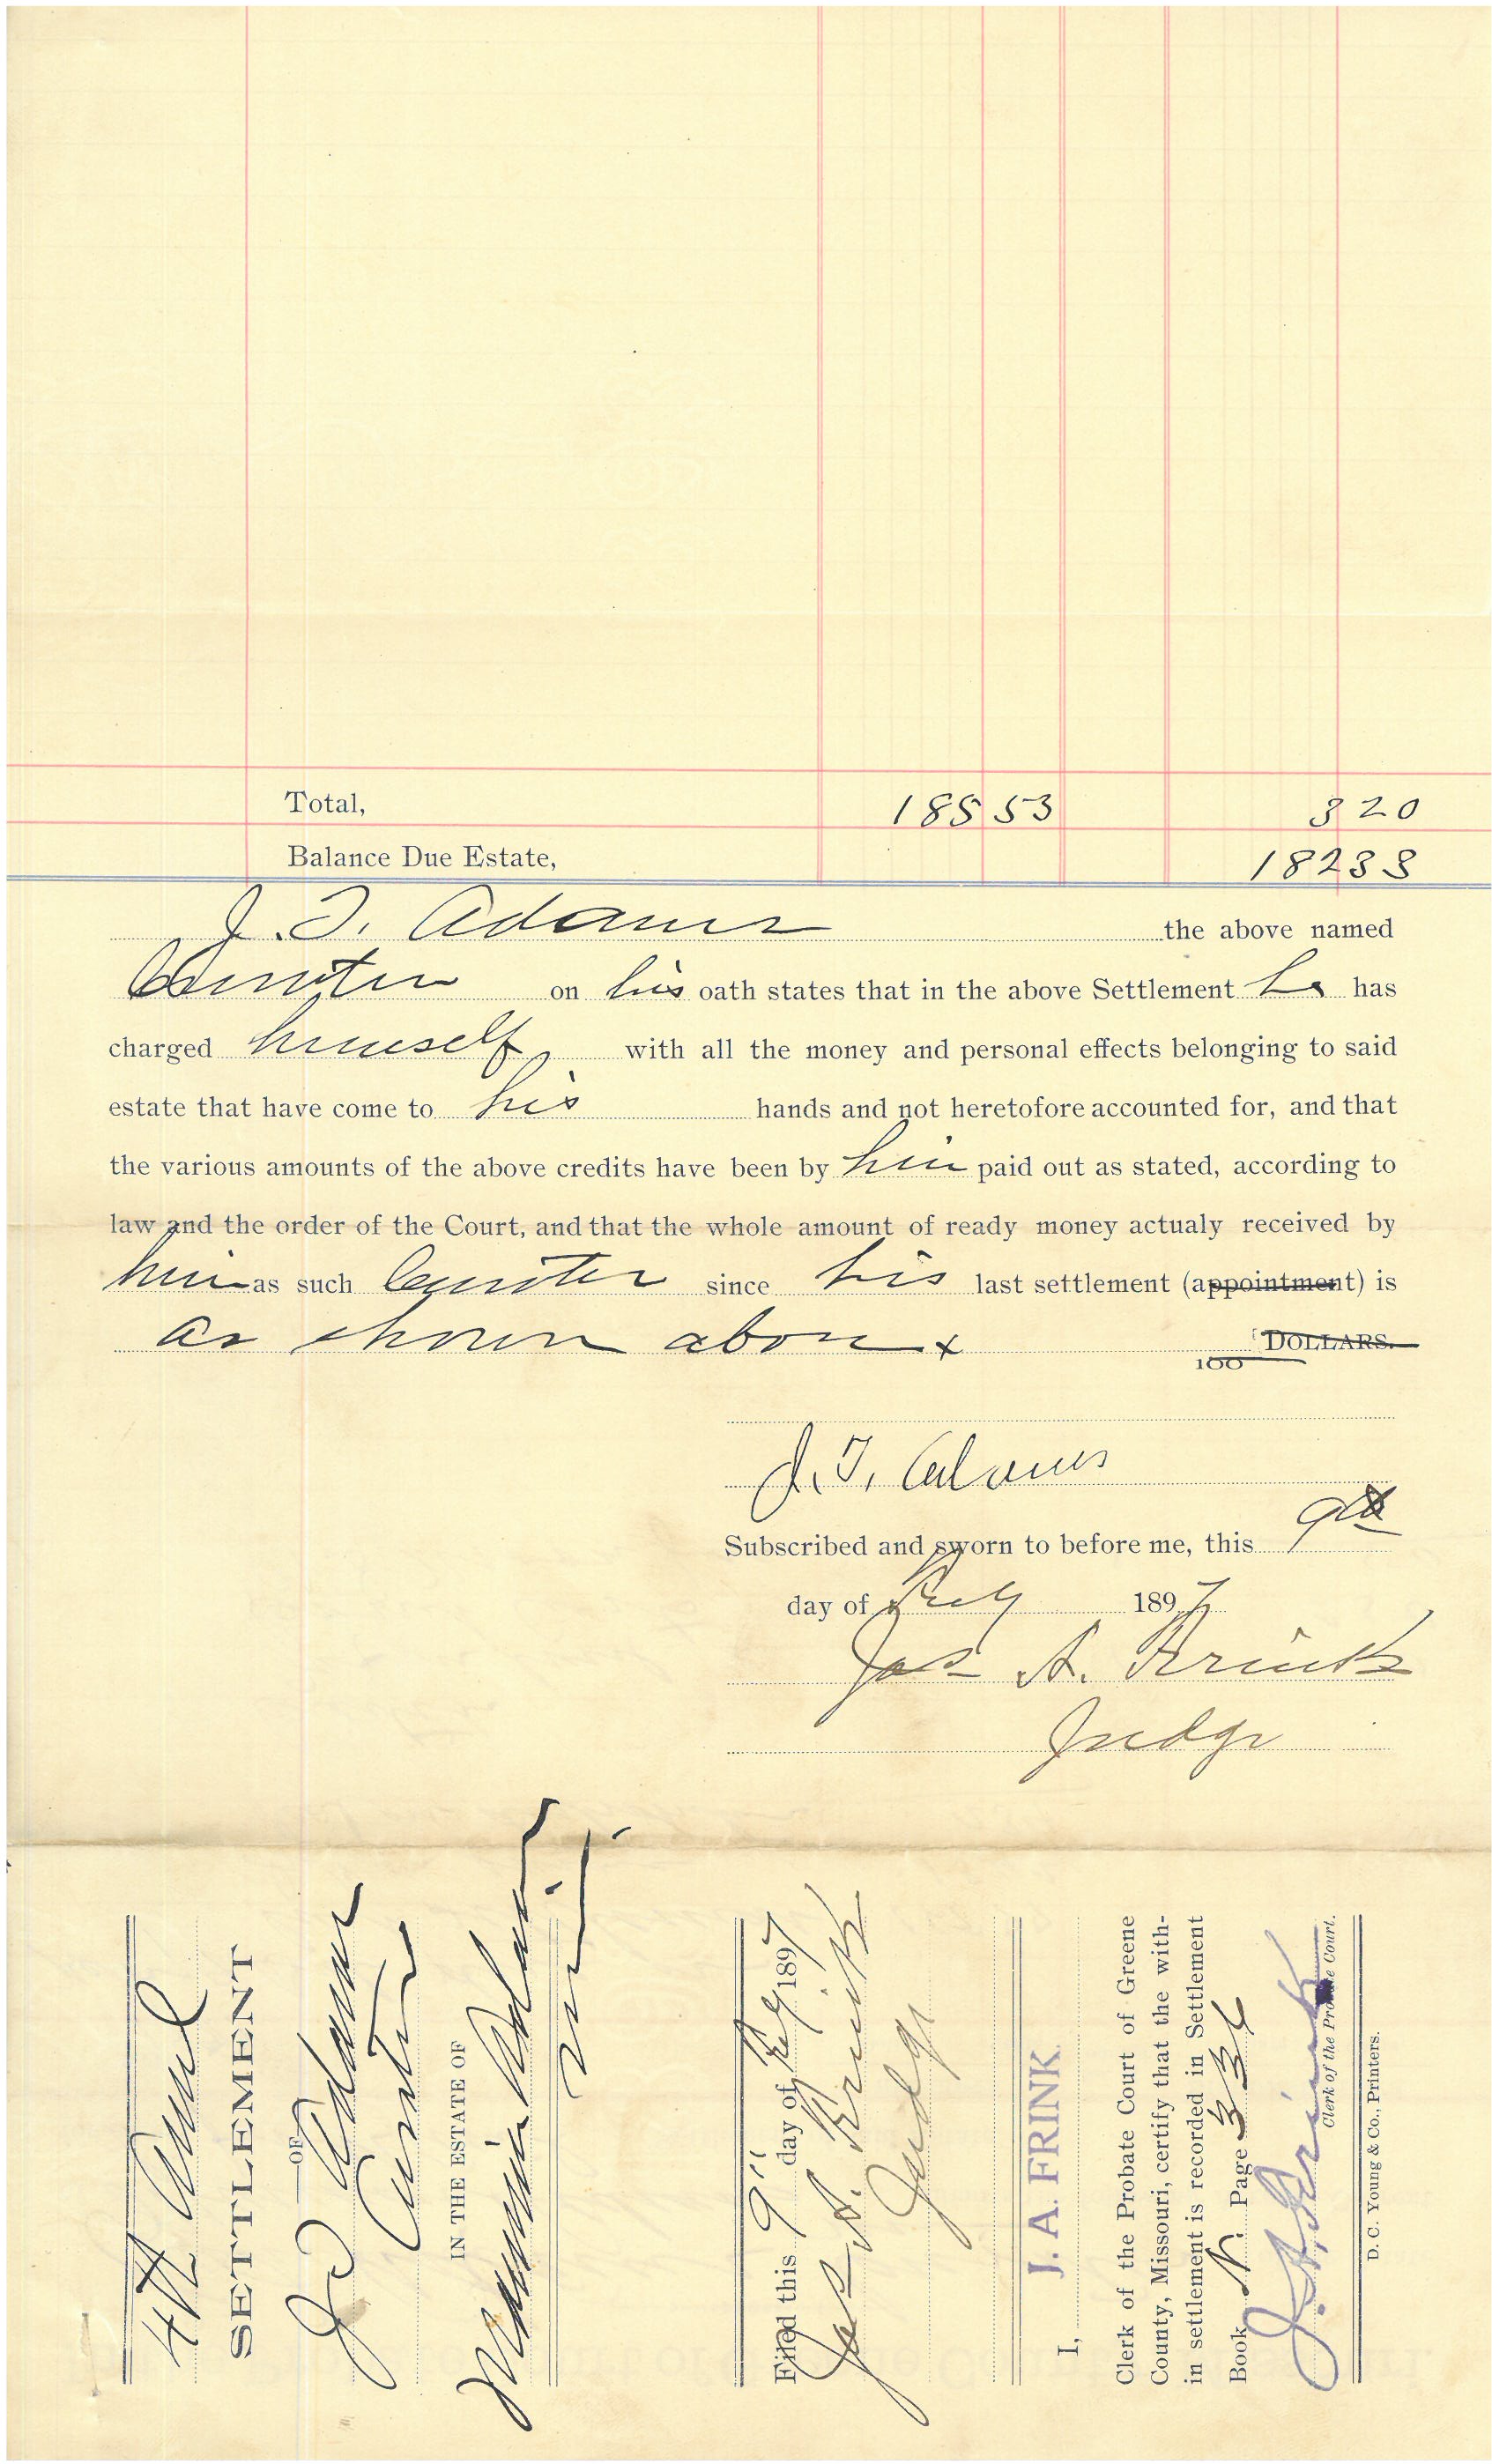 Total, 185 53 3 20
Balance Due Estate, 182 33
J. T. Adams the above named
on his oath states that in the above Settlement he has
charged himself with all the money and personal effects belonging to said
estate that have come to his hands and not heretofore accounted for, and that
the various amounts of the above credits have been by him paid out as stated, according to
law and the order of the Court, and that the whole amount of ready money actualy received by
him as such since his last settlement (appointment) is
as shown above x 100 DOLLARS.
J. T. Adams
Subscribed and sworn to before me, this 9th
day of July 1897
Jas A. Frink
Judge
4th Annl
SETTLEMENT
OF
J T Adams
IN THE ESTATE OF
Minnie Adams
Filed this 9" day of July 1897
Jas A. Frink
Judge
I, J. A. FRINK.
Clerk of the Probate Court of Greene
County, Missouri, certify that the with-
in settlement is recorded in Settlement
Book N. Page 334
J. A. Frink
Clerk of the Probate Court.
D. C. Young & Co., Printers.